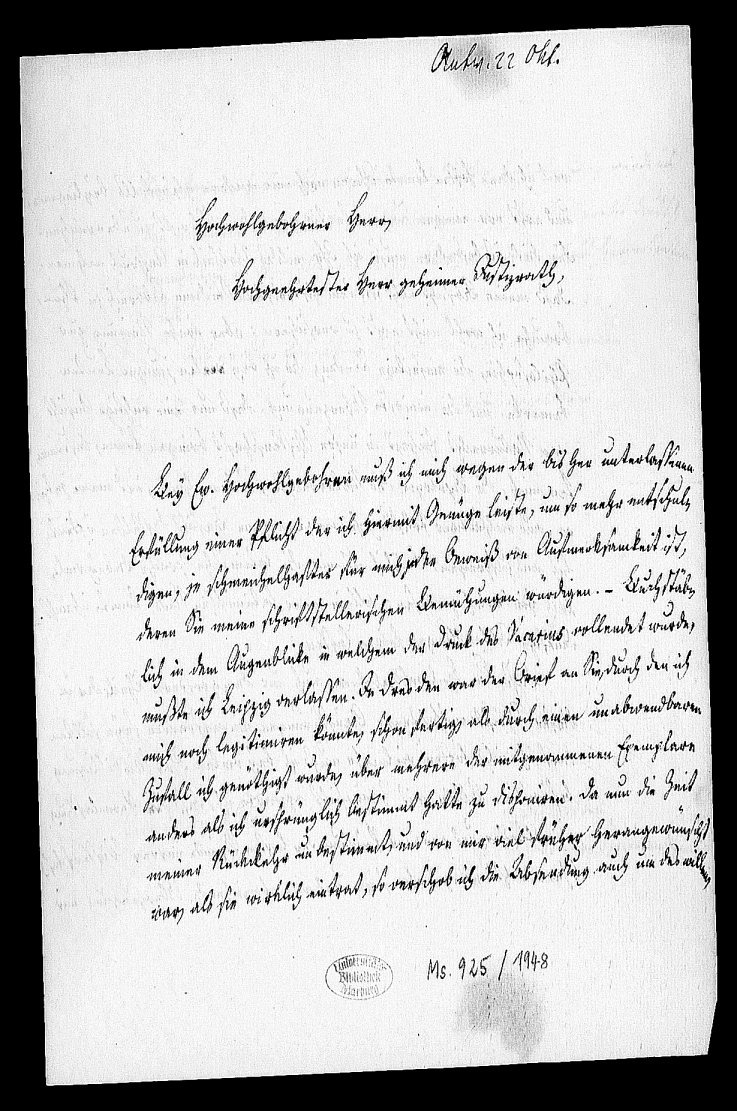 Antw. 22 Okt.
Hochwohlgebohrner Herr,
Hochgeehrtester Herr geheimer Justizrath,
Bey Ew. Hochwohlgebohren muß ich mich wegen der bis her unterlaßenen
Erfüllung einer Pflicht der ich hiermit Genüge leiste, um so mehr entschul-
digen, je schmeichelhafter für mich jeder Beweiß von Aufmerksamkeit ist,
deren Sie meine schriftstellerischen Bemühungen würdigen. – Buchstäb-
lich in dem Augenblicke in welchem der Druck des vollendet wurde,
mußte ich Leipzig verlaßen. In Dresden war der Brief an Sie, durch den ich
mich noch legitimiren könnte, schon fertig, als durch einen unabwendbaren
Zufall ich genöthigt wurde, über mehrere der mitgenommenen Exemplare
anders als ich ursprünglich bestimmt hatte zu disponiren. Da nun die Zeit
meiner Rückkehr unbestimmt, und von mir viel früher herangewünscht
war, als sie wirklich eintrat, so verschob ich die Absendung auch um deswillen,
Universitäts
Bibliothek
Marburg
Ms. 925 / 1948